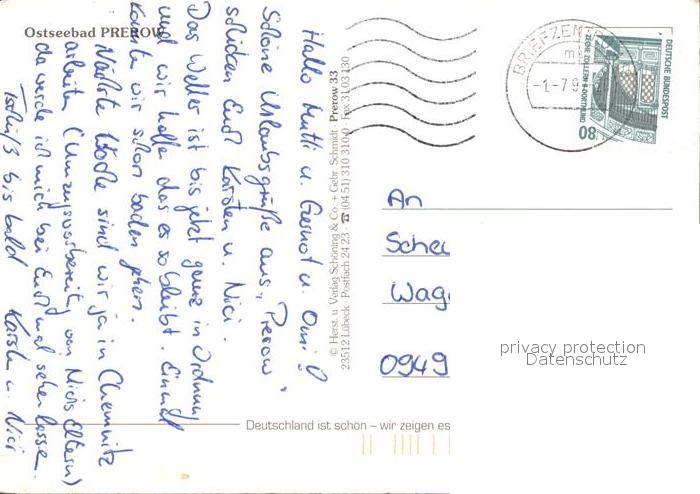 Ostseebad PREROW
Hallo Mutti u. Gernot u. Omi!
Schöne Urlaubsgrüße aus "Prerow"
schicken Euch Karsten u. Nici.
Das Wetter ist bis jetzt ganz in Ordnung
und wir hoffen das es so bleibt. Einmal
konnte wir schon baden gehen.
Nächste Woche sind wir ja in Chemnitz
arbeiten (Umzugsvorbereit. von Nicis Eltern)
da werde ich mich bei Euch mal sehen lassen.
Tschüß bis bald Karsten u. Nici
© Herst. u. Verlag Schöning & Co. + Gebr. Schmidt · Prerow 33
23512 Lübeck · Postfach 24 23 · ☎ (04 51) 310 310-0 · Fax 31 03 130
BRIEFZEN
-1.-7.9
DEUTSCHE BUNDESPOST
ZECHE ZOLLERN II · DORTMUND
80
An
Wag
0949
privacy protection
Datenschutz
Deutschland ist schön – wir zeigen es